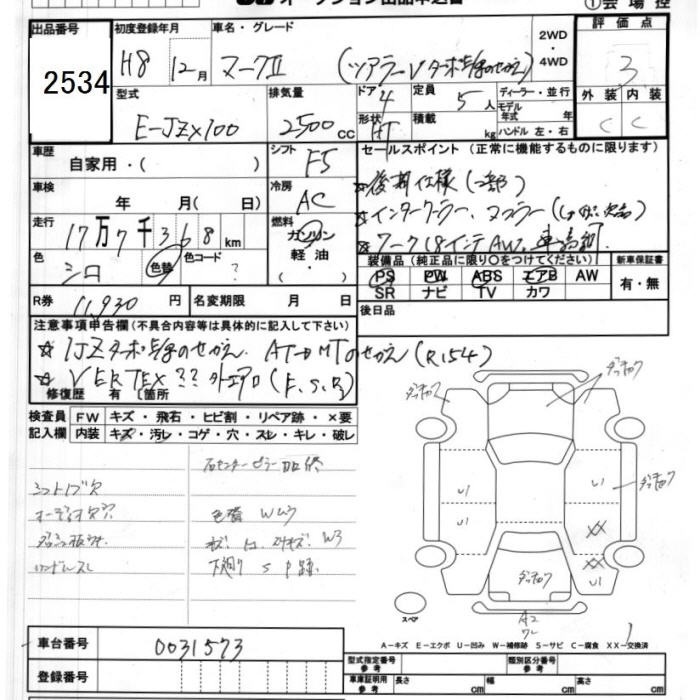 オークション出品申込書
①会場控
出品番号 2534
初度登録年月 H8年 12月
車名・グレード マークⅡ (ツアラーVターボ
2WD・4WD
評価点 3
外装 C 内装 C
型式 E-JZX100
排気量 2500cc
ドア 4 形状 HT
定員 5人
積載 kg
ディーラー・並行
モデル年式 年
ハンドル 左・右
車歴 自家用・( )
シフト F5
車検 年 月( 日)
冷房 AC
走行 17万7千368km
燃料 ガソリン 軽油・( )
色 シロ 色替
色コード ?
R券 11,930円
名変期限 月 日
セールスポイント(正常に機能するものに限ります)
☆後期仕様(一部)
☆インタークーラー、マフラー
☆ワーク18インチAW、車高調
装備品(純正品に限り〇をつけてください)
PS PW ABS エアB AW
SR ナビ TV カワ
新車保証書 有・無
後日品
注意事項申告欄(不具合内容等は具体的に記入して下さい)
☆1JZターボ AT→MTのせかえ(R154)
☆VERTEX?? 外エアロ(F.S.R)
修復歴 有 [箇所
検査員記入欄
FW キズ・飛石・ヒビ割・リペア跡・×要
内装 キズ・汚レ・コゲ・穴・スレ・キレ・破レ
右センターピラー
シフトノブ欠
色替 W
W3
ハンドルスレ
下廻り S P跡
ダッチョウ
ダッチョウ
ダッチョウ
ダッチョウ
U1 U1
U1 XX
XX U1
A2
スペア
A－キズ E－エクボ U－凹み W－補修跡 S－サビ C－腐食 XX－交換済
車台番号 0031573
登録番号
型式指定番号 参考
類別区分番号 参考
車庫証明用 参考 長さ cm 幅 cm 高さ cm